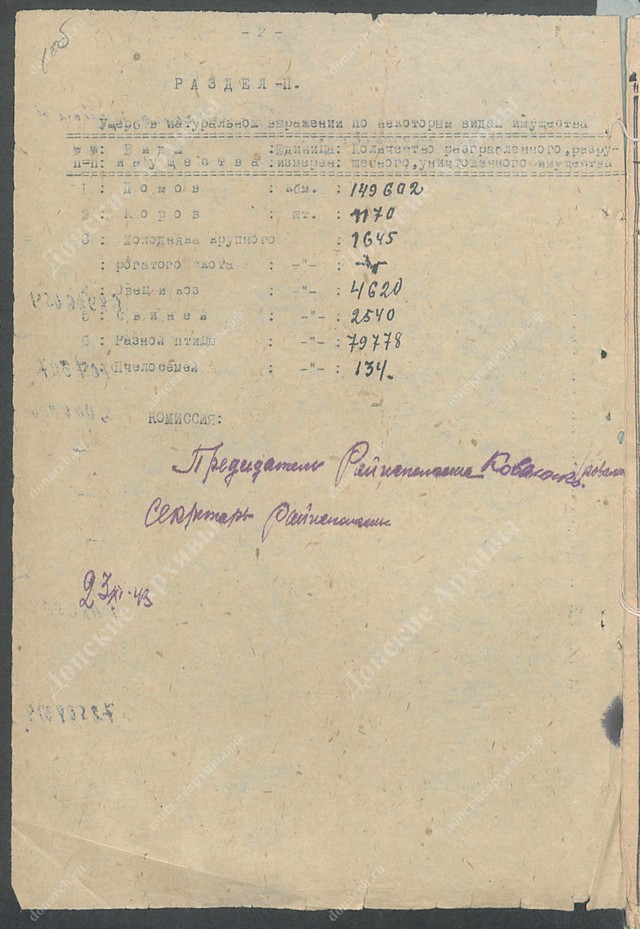 - 2 -
РАЗДЕЛ-П.
Ущерб в натуральном выражении по некоторым видам имущества
№№: Виды :Единица: Количество разграбленного,разру-
п-п: имущества :измерен: шенного,уничтоженного имущества
1 : Домов : кбм. : 149602
2 : Коров : шт. : 1170
3 : Молодняка крупного : 1645
: рогатого скота : -"- :
: Овец и коз : -"- : 4620
5 : Свиней : -"- : 2540
6 : Разной птицы : -"- : 79778
: Пчелосемей : -"- : 134
КОМИССИЯ:
Председатель Райисполкома
Секретарь Райисполкома
23/XI-43